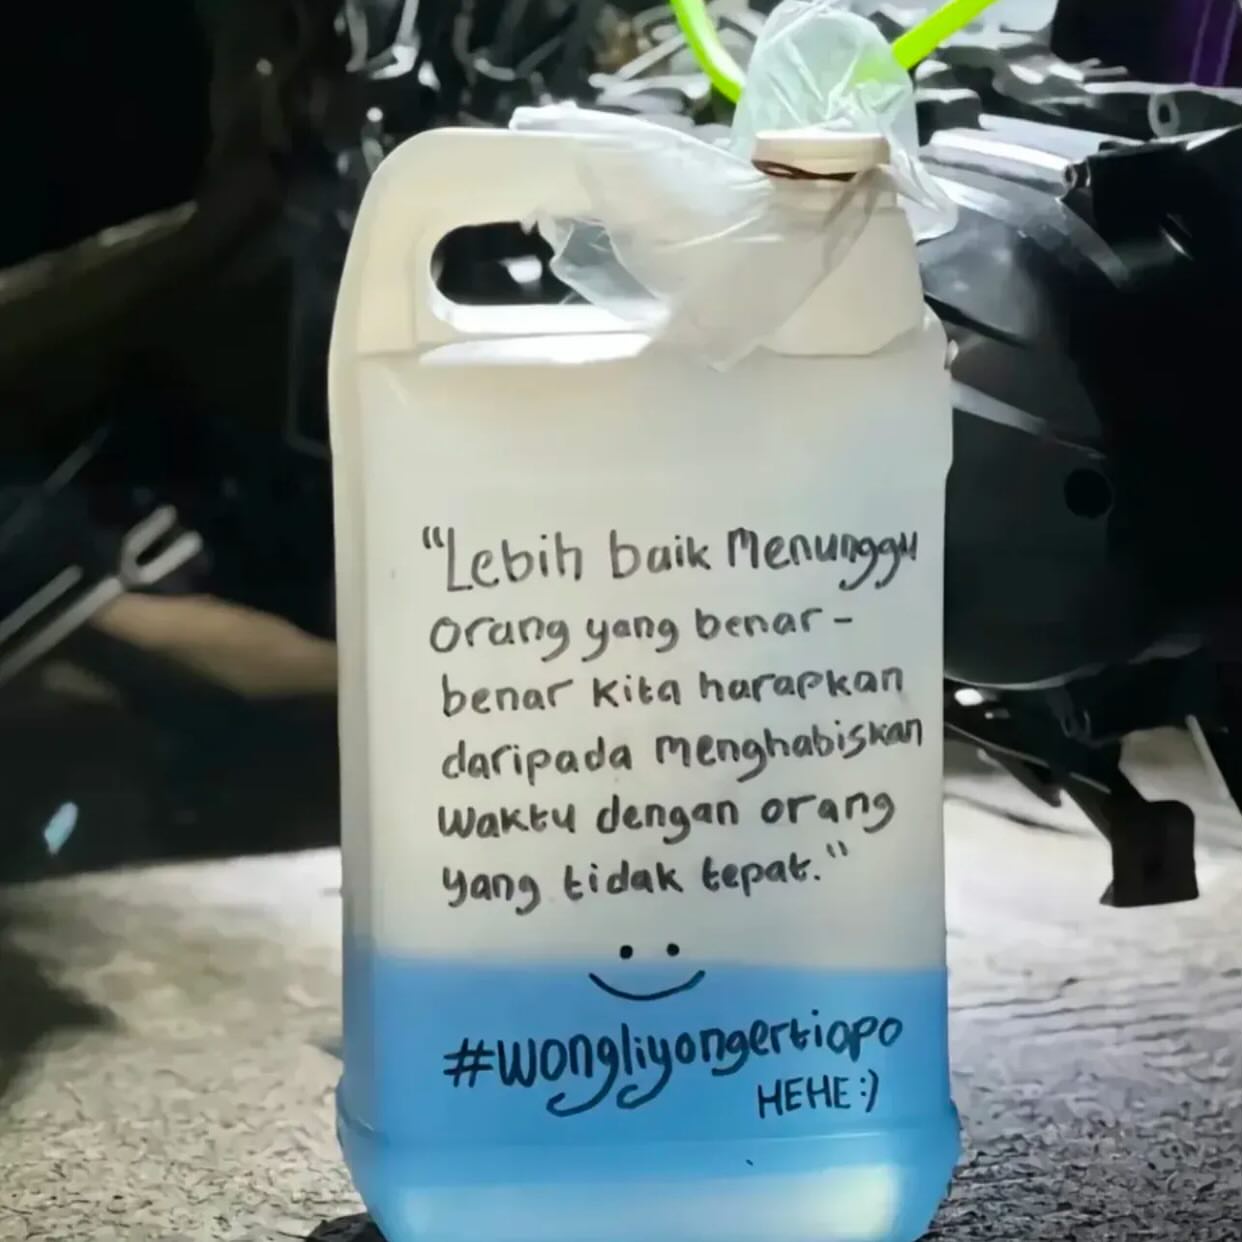 "Lebih baik Menunggu
orang yang benar-
benar kita harapkan
daripada menghabiskan
waktu dengan orang
yang tidak tepat."
#wongliyongertiopo
HEHE :)